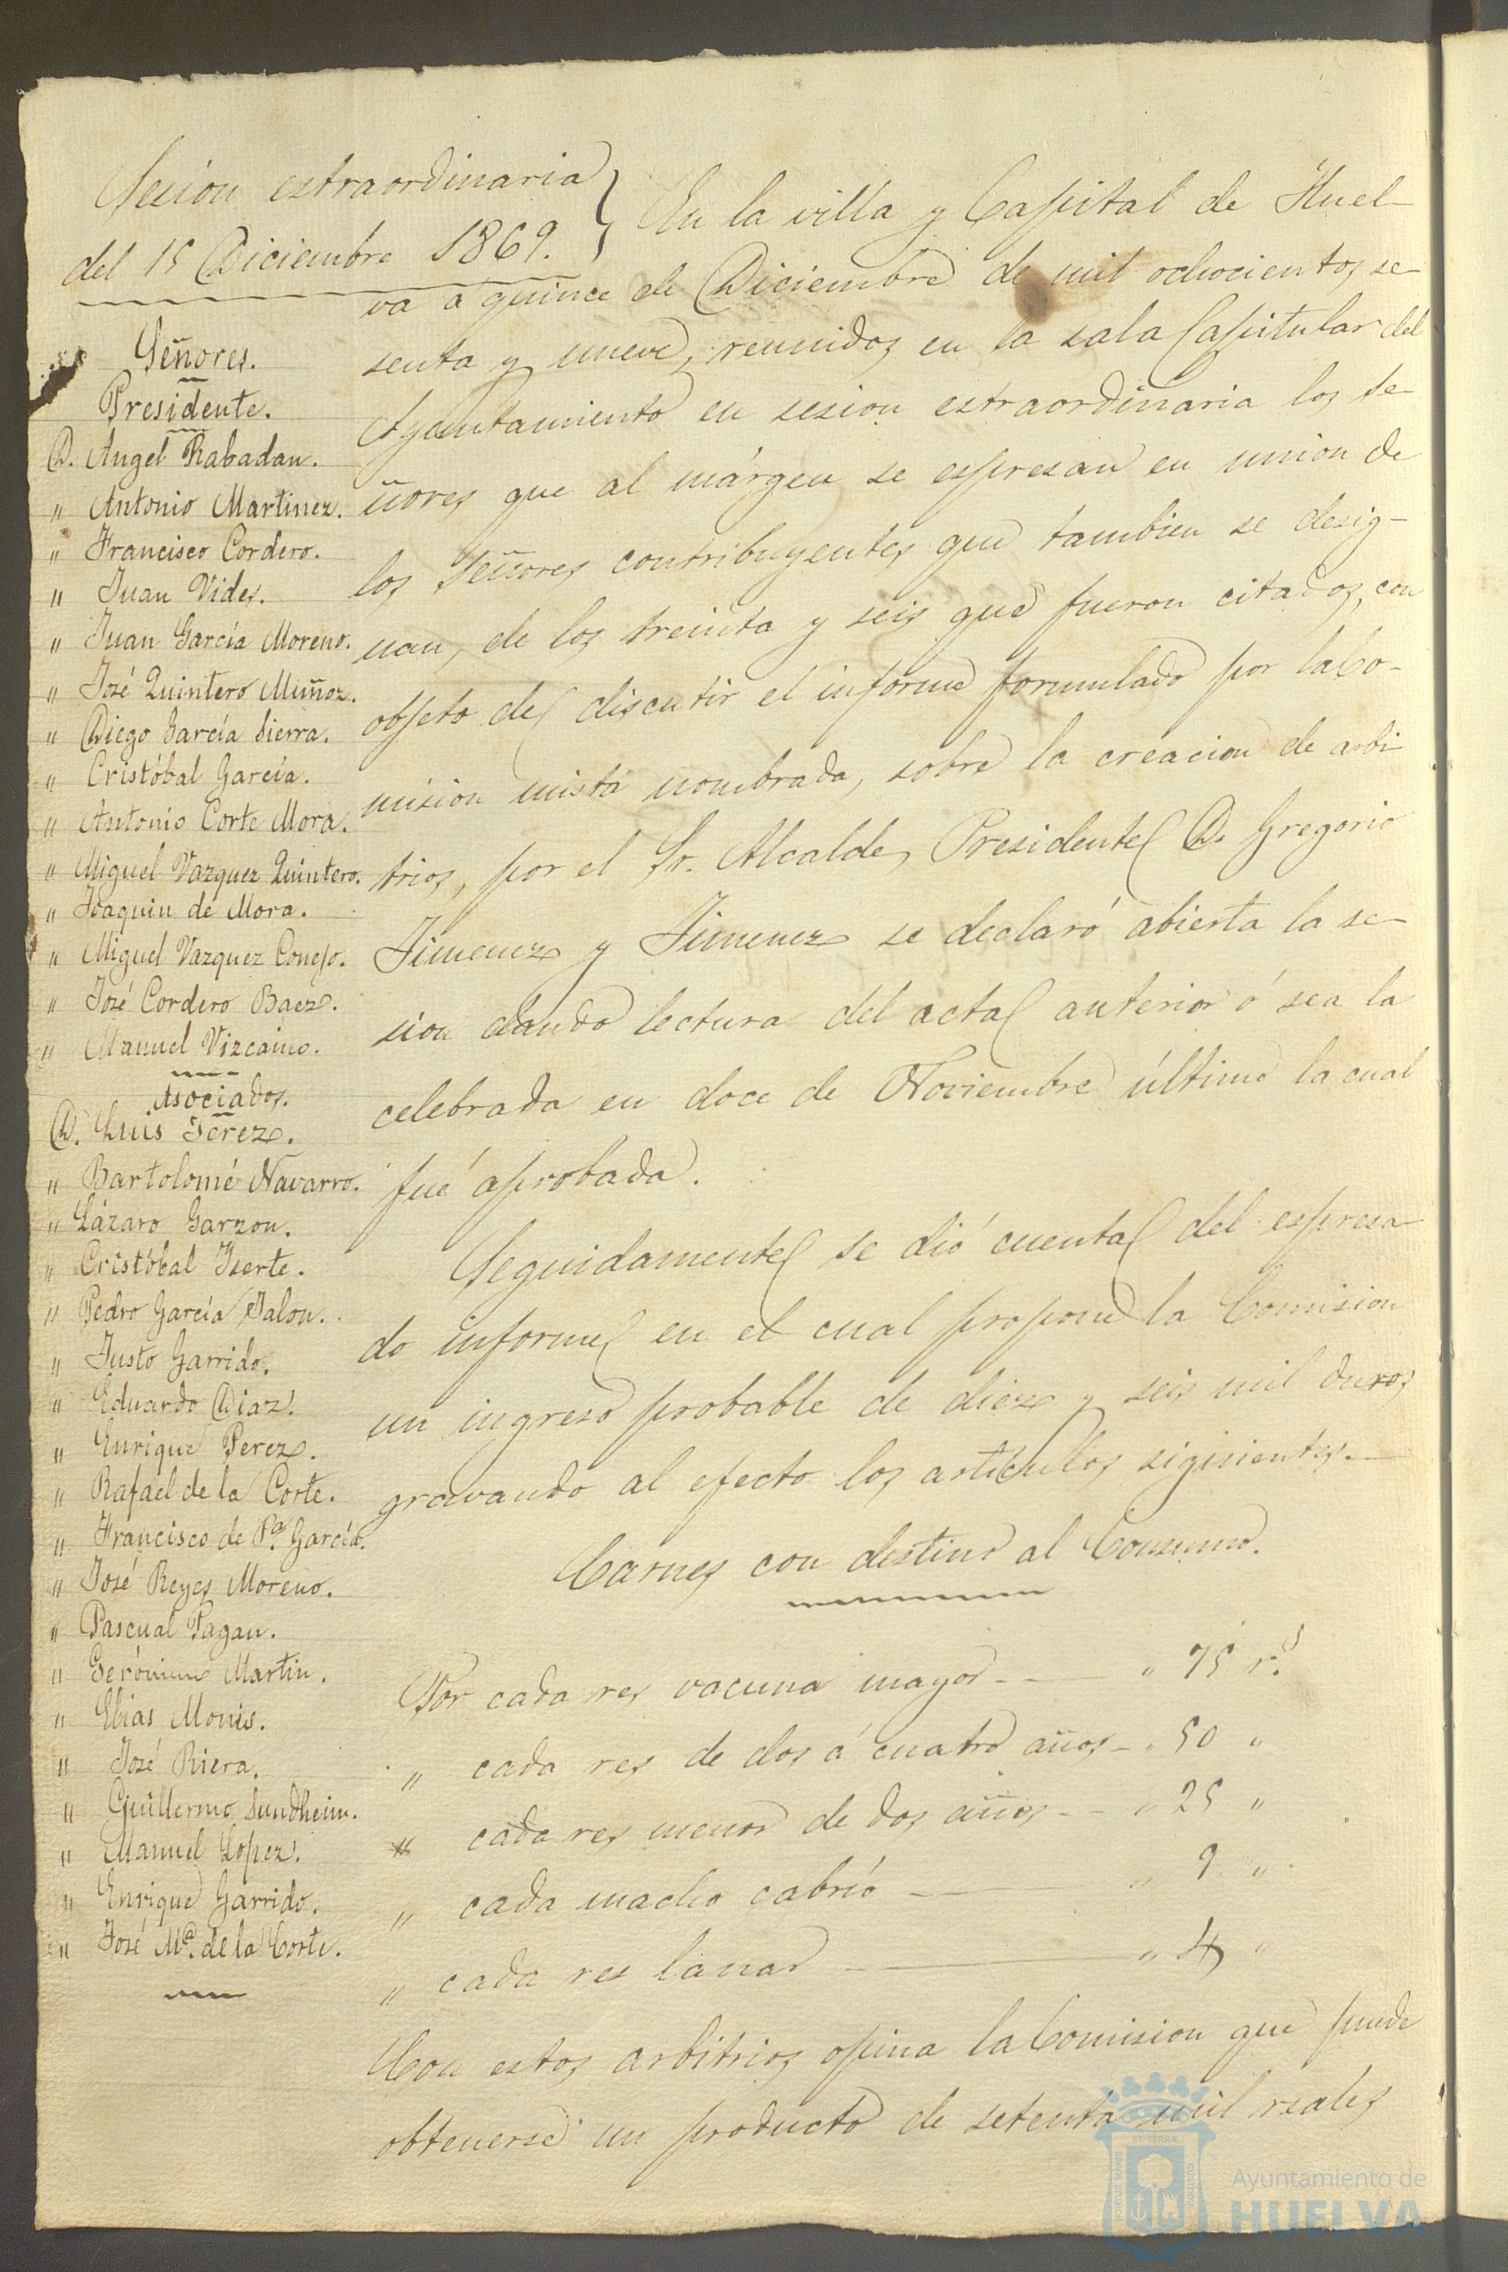 Sesion estraordinaria
del 15 Diciembre 1869.
Señores.
Presidente.
D. Angel Rabadan.
" Antonio Martinez.
" Francisco Cordero.
" Juan Vides.
" Juan García Moreno.
" José Quintero Muñoz.
" Diego García Sierra.
" Cristóbal García.
" Antonio Corte Mora.
" Miguel Vazquez Quintero.
" Joaquin de Mora.
" Miguel Vazquez Conejo.
" José Cordero Baez.
" Manuel Vizcaino.
Asociados.
D. Luis Jerez.
" Bartolomé Navarro.
" Lázaro Garzon.
" Cristóbal Iserte.
" Pedro García Jalon.
" Justo Garrido.
" Eduardo Diaz.
" Enrique Perez.
" Rafael de la Corte.
" Francisco de Pa. García.
" José Reyes Moreno.
" Pascual Pagan.
" Gerónimo Martin.
" Elias Monis.
" José Riera.
" Guillermo Sundheim.
" Manuel Lopez.
" Enrique Garrido.
" José Ma. de la Corte.
En la villa y Capital de Huel-
va á quince de Diciembre de mil ochocientos se-
senta y nueve, reunidos en la sala Capitular del
Ayuntamiento en sesion estraordinaria los Se-
ñores que al márgen se espresan en union de
los Señores contribuyentes que tambien se desig-
nan, de los treinta y seis que fueron citados, con
objeto de discutir el informe formulado por la Co-
mision mista nombrada, sobre la creacion de arbi-
trios, por el Sr. Alcalde, Presidente D. Gregorio
Jimenez y Jimenez se declaró abierta la se-
sion dando lectura del acta anterior ó sea la
celebrada en doce de Noviembre último la cual
fué aprobada.
Seguidamente se dió cuenta del espresa-
do informe en el cual propone la Comision
un ingreso probable de diez y seis mil duros
gravando al efecto los artículos siguientes.
Carnes con destino al Consumo.
Por cada res vacuna mayor - " 75 r.s
" cada res de dos á cuatro años - " 50 "
" cada res menor de dos años - " 25 "
" cada macho cabrío - " 9 "
" cada res lanar - " 4 "
Con estos arbitrios opina la Comision que puede
obtenerse un producto de setenta mil reales
Ayuntamiento de
HUELVA